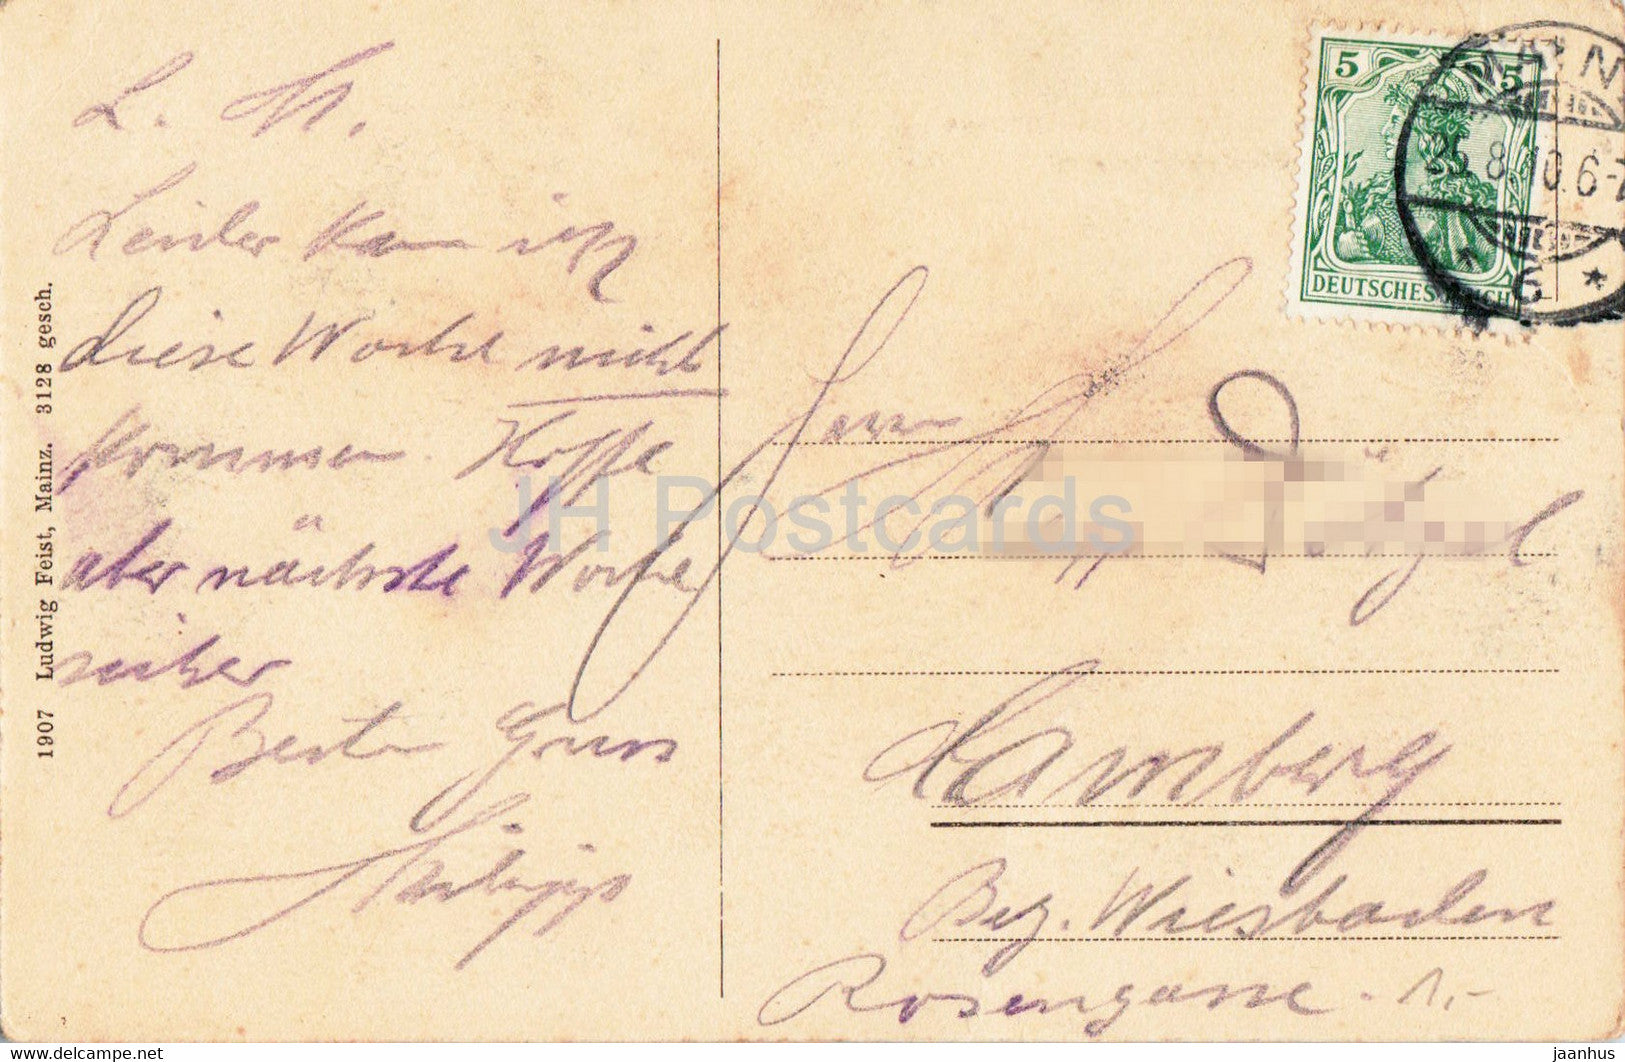 L. M.
Leider kann ich
diese Woche nicht
kommen. Hoffe
aber nächste Woche
sicher
Besten Gruss
Philipp
1907 Ludwig Feist, Mainz. 3128 gesch.
5 5
DEUTSCHES REICH
MAINZ
25.8.10.6-7
* 6 *
Herrn
Camberg
Bez. Wiesbaden
Rosengasse 1.-
JH Postcards
delcampe.net
jaanhus